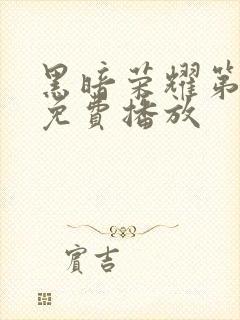 黑暗荣耀第
免费播放
賓吉